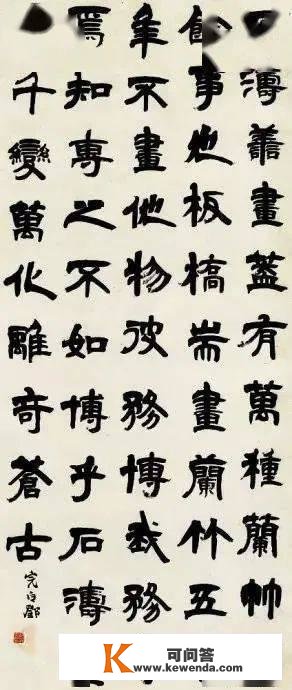 濤善畫蓋有萬種蘭竹
餘事也板橋耑畫蘭竹五
年不畫他物彼務博我務
焉知專之不如博乎石濤
千變萬化離奇蒼古
完白鄧
可问答
www.kewenda.com